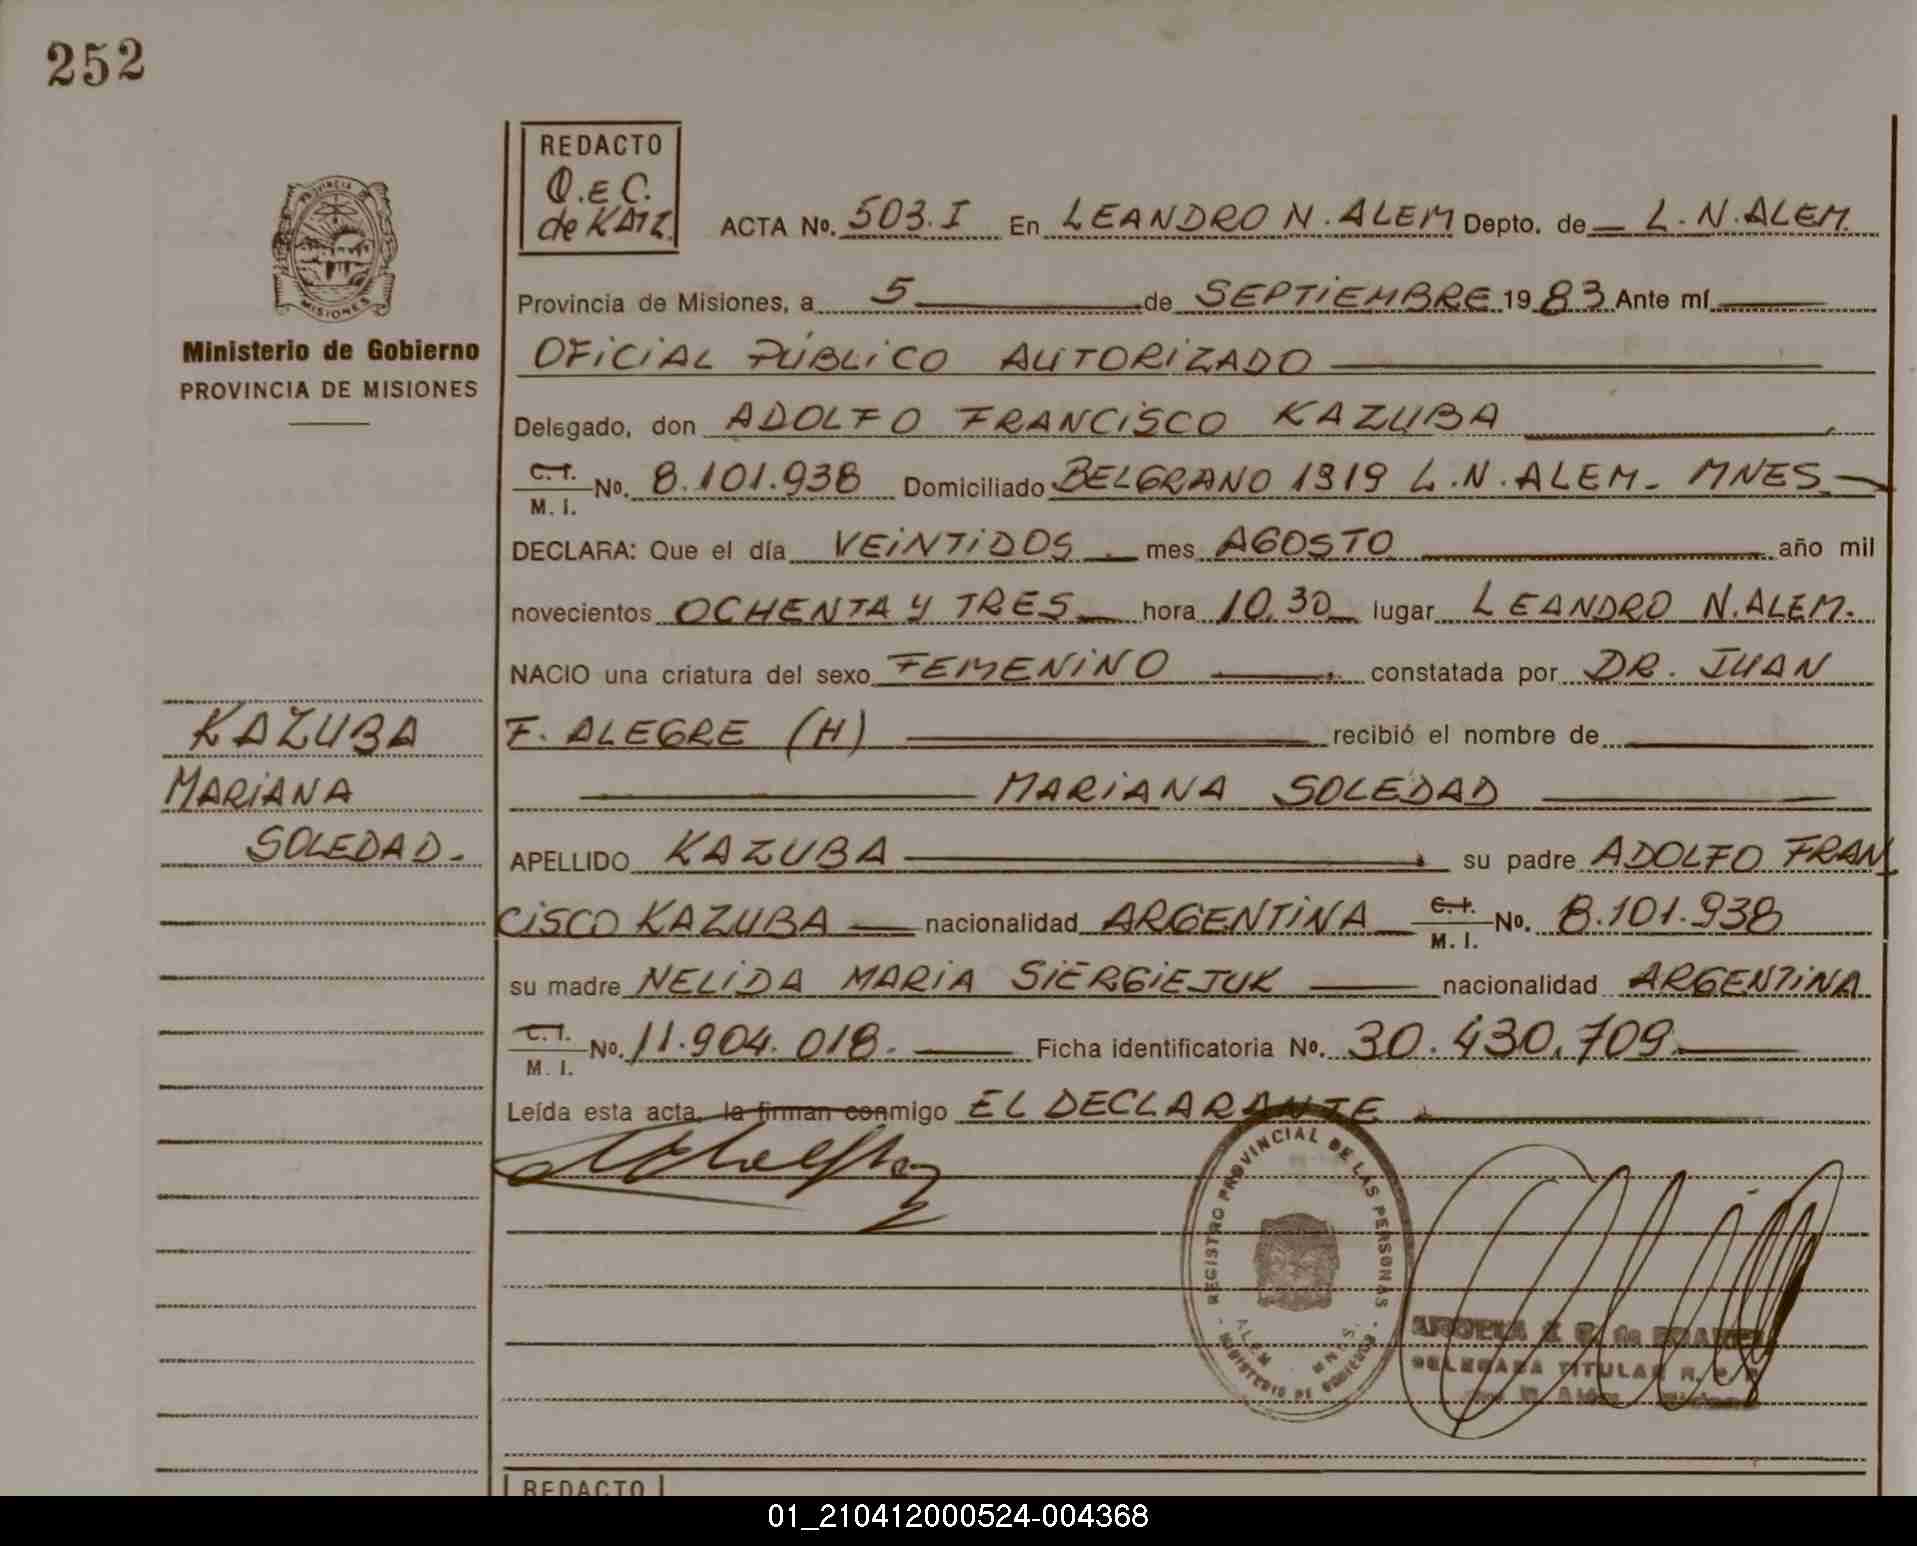 252
REDACTO
O.E.C.
de KATZ.
ACTA No. 503.I En LEANDRO N. ALEM Depto. de L.N.ALEM.
Provincia de Misiones, a 5 de SEPTIEMBRE 1983 Ante mí
PROVINCIA DE
MISIONES
Ministerio de Gobierno
PROVINCIA DE MISIONES
OFICIAL PÚBLICO AUTORIZADO
Delegado, don ADOLFO FRANCISCO KAZUBA
C.I. No. 8.101.938 Domiciliado BELGRANO 1319 L.N.ALEM. MNES
M. I.
DECLARA: Que el día VEINTIDOS mes AGOSTO año mil
novecientos OCHENTA Y TRES hora 10.30 lugar LEANDRO N.ALEM.
NACIO una criatura del sexo FEMENINO constatada por DR. JUAN
F. ALEGRE (H) recibió el nombre de
KAZUBA
MARIANA
SOLEDAD.
MARIANA SOLEDAD
APELLIDO KAZUBA su padre ADOLFO FRAN
CISCO KAZUBA nacionalidad ARGENTINA C.I. No. 8.101.938
M. I.
su madre NELIDA MARIA SIERGIEJUK nacionalidad ARGENTINA
C.I. No. 11.904.018. Ficha identificatoria No. 30.430.709
M. I.
Leída esta acta, la firman conmigo EL DECLARANTE
REGISTRO PROVINCIAL DE LAS PERSONAS
ALEM - MNES.
MINISTERIO DE GOBIERNO
DELEGADA TITULAR R. P. P.
REDACTO
01_210412000524-004368